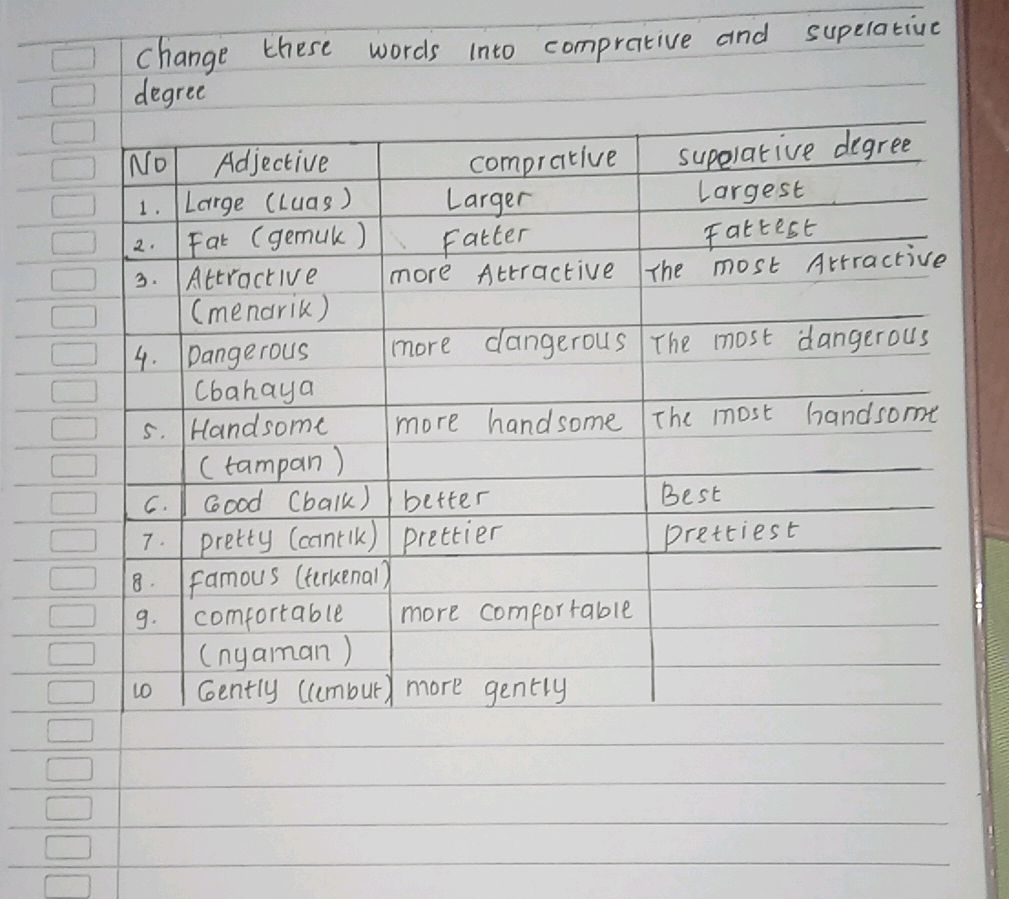 Change these words Into comprative and superlative
degree
No Adjective comprative superlative degree
1. Large (Luas) Larger Largest
2. Fat (gemuk) Fatter Fattest
3. Attractive more Attractive The most Attractive
(menarik)
4. Dangerous more dangerous The most dangerous
(bahaya
5. Handsome more handsome The most handsome
(tampan)
6. Good (baik) better Best
7. pretty (cantik) prettier prettiest
8. Famous (terkenal)
9. comfortable more comfortable
(nyaman)
10 Gently (lembut) more gently